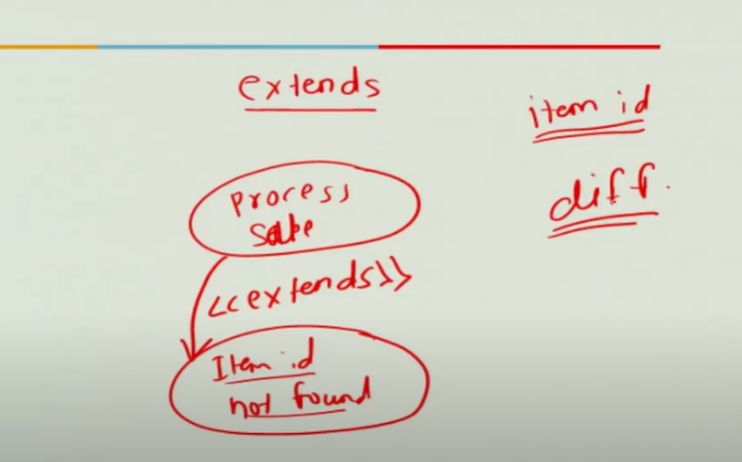 extends
item id
diff.
Process
Sale
<<extends>>
Item id
not found